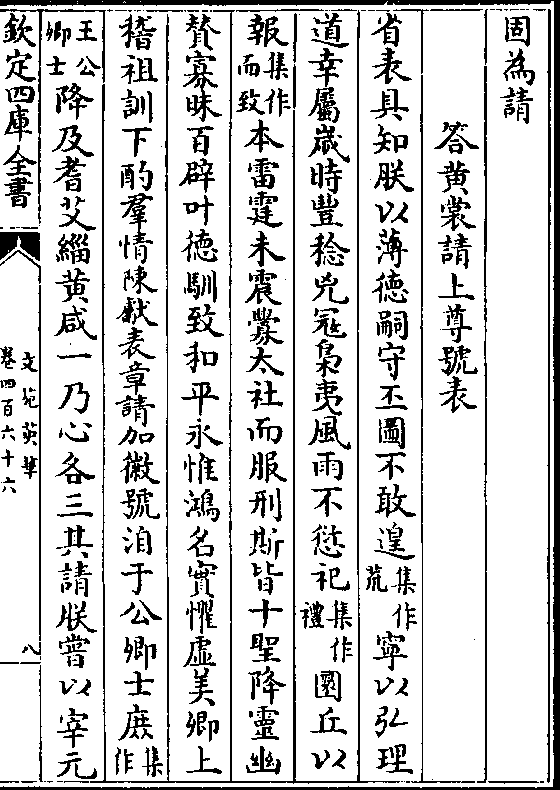 固為請
答黃裳請上尊號表
省表具知朕以薄德嗣守丕圖不敢遑集作荒寧以弘理
道幸屬歳時豐稔兇冦梟夷風雨不愆祀集作禮圜丘以
報集作而致本雷霆未震釁太社而服刑斯皆十聖降靈幽
賛寡昧百辟叶德馴致和平永惟鴻名實懼虛美卿上
稽祖訓下酌羣情陳獻表章請加徽號洎于公卿士庶集作
王公卿士降及耆艾緇黃咸一乃心各三其請朕嘗以宰元
欽定四庫全書
文苑英華
卷四百六十六
八